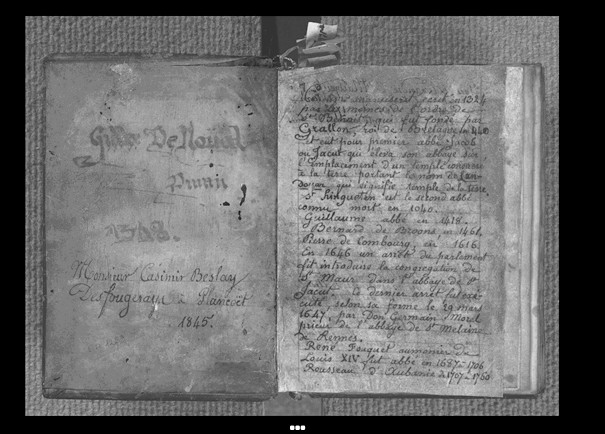 Gilles De Noual
1548.
Monsieur Casimir Beslay
Desfougerays à Plancoët
1845.
manuscrit écrit en 1324
par les moines de l'ordre de
fut fondé par
Grallon, roi de Bretagne en 440
et eut pour premier abbé Jacob
ou Jacut qui éleva son abbaye sur
l'emplacement d'un temple consacré
à la terre portant le nom de Lan-
douar qui signifie temple de la terre.
St Hinguethen est le second abbé
connu mort en 1040.
Guillaume abbé en 1418.
Bernard de Broons en 1461.
Pierre de Combourg, en 1616.
En 1646 un arrêt du parlement
introduit la congrégation de
St Maur dans l'abbaye de St
Jacut. Ce dernier arrêt fut exé-
cuté selon sa forme le 29 mars
1647, par Don Germain Morel
prieur de l'abbaye de St Melaine
de Rennes.
René Fouquet aumonier de
Louis XIV fut abbé en 1687-1706
Rousseau d'Aubanie de 1707-1750